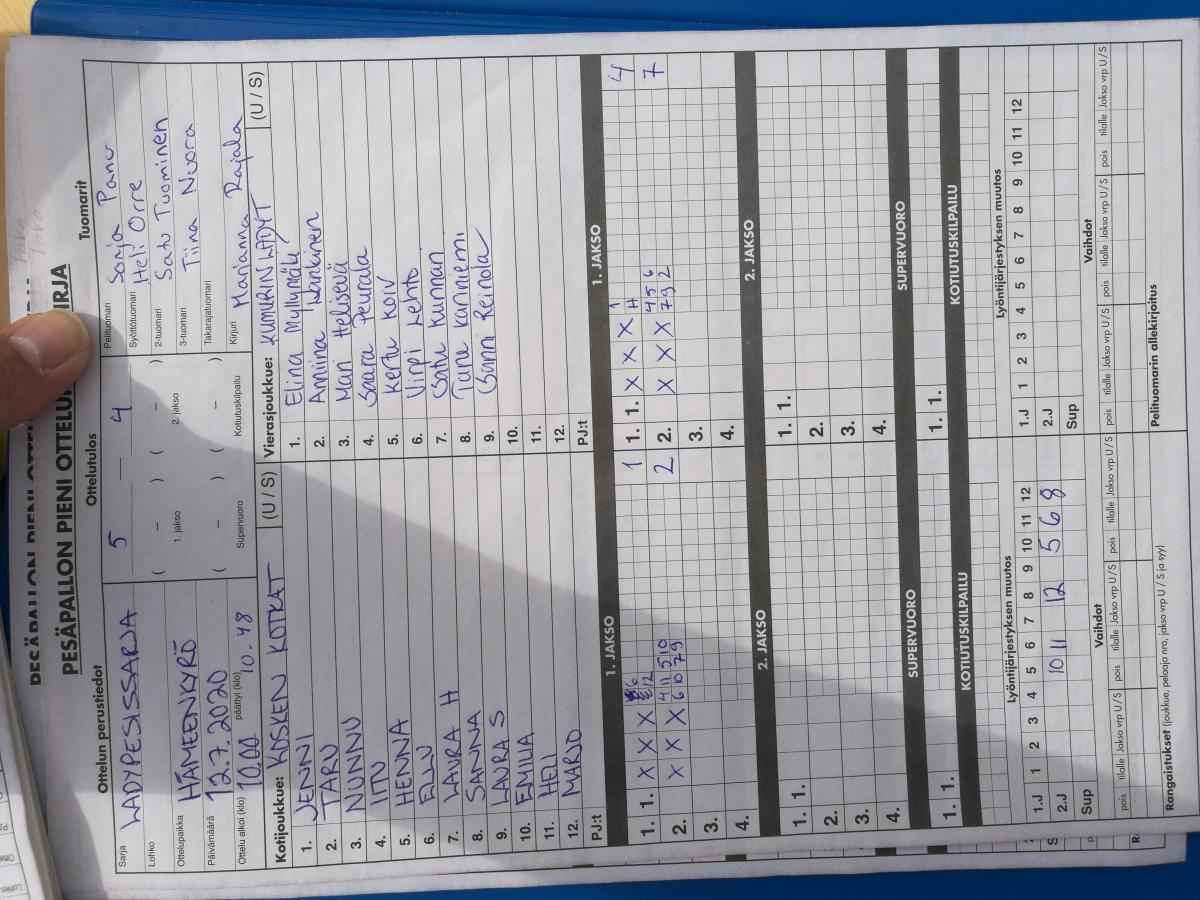 PESÄPALLON PIENI OTTELU
PESÄPALLON PIENI OTTELU IRJA
Ottelun perustiedot
Sarja LADYPESISSARJA
Lohko
Ottelupaikka HÄMEENKYRÖ
Päivämäärä 12.7.2020
Ottelu alkoi (klo) 10.00 päättyi (klo) 10.48
Ottelutulos
5 — 4
( – ) ( – )
1. jakso 2. jakso
( – ) ( – )
Supervuoro Kotiutuskilpailu
Tuomarit
Pelituomari Sonja Panu
Syöttötuomari Heli Orre
2-tuomari Satu Tuominen
3-tuomari Tiina Nuora
Takarajatuomari
Kirjuri Marianna Rajala
Kotijoukkue: KOSKEN KOTKAT (U / S)
1. JENNI
2. TARU
3. NUNNU
4. IITU
5. HENNA
6. ELLU
7. LAURA H
8. SANNA
9. LAURA S
10. EMILIA
11. HELI
12. MARJO
PJ:t
Vierasjoukkue: KUMURIN LADYT (U / S)
1. Elina Myllymäki
2. Anniina
3. Mari
4. Saara Peurala
5. Kertu Koiv
6. Virpi Lehto
7. Satu Kunnari
8. Tane Kariniemi
9. Gunni Reinola
10.
11.
12.
PJ:t
1. JAKSO
1. 1. X X X 12 1
2. X X X 4 11 5 10 2
6 10 7 9
3.
4.
1. JAKSO
1. 1. X X X H 1 4
2. X X X 4 5 6 7
7 9 2
3.
4.
2. JAKSO
1. 1.
2.
3.
4.
2. JAKSO
1. 1.
2.
3.
4.
SUPERVUORO
1. 1.
SUPERVUORO
1. 1.
KOTIUTUSKILPAILU
KOTIUTUSKILPAILU
Lyöntijärjestyksen muutos
1.J 1 2 3 4 5 6 7 8 9 10 11 12
2.J 10 11 12 5 6 8
Sup
Lyöntijärjestyksen muutos
1.J 1 2 3 4 5 6 7 8 9 10 11 12
2.J
Sup
Vaihdot
pois tilalle Jakso vrp U / S pois tilalle Jakso vrp U / S pois tilalle Jakso vrp U / S
Vaihdot
pois tilalle Jakso vrp U / S pois tilalle Jakso vrp U / S pois tilalle Jakso vrp U / S
Rangaistukset (joukkue, pelaaja nro, jakso vrp U / S ja syy)
Pelituomarin allekirjoitus